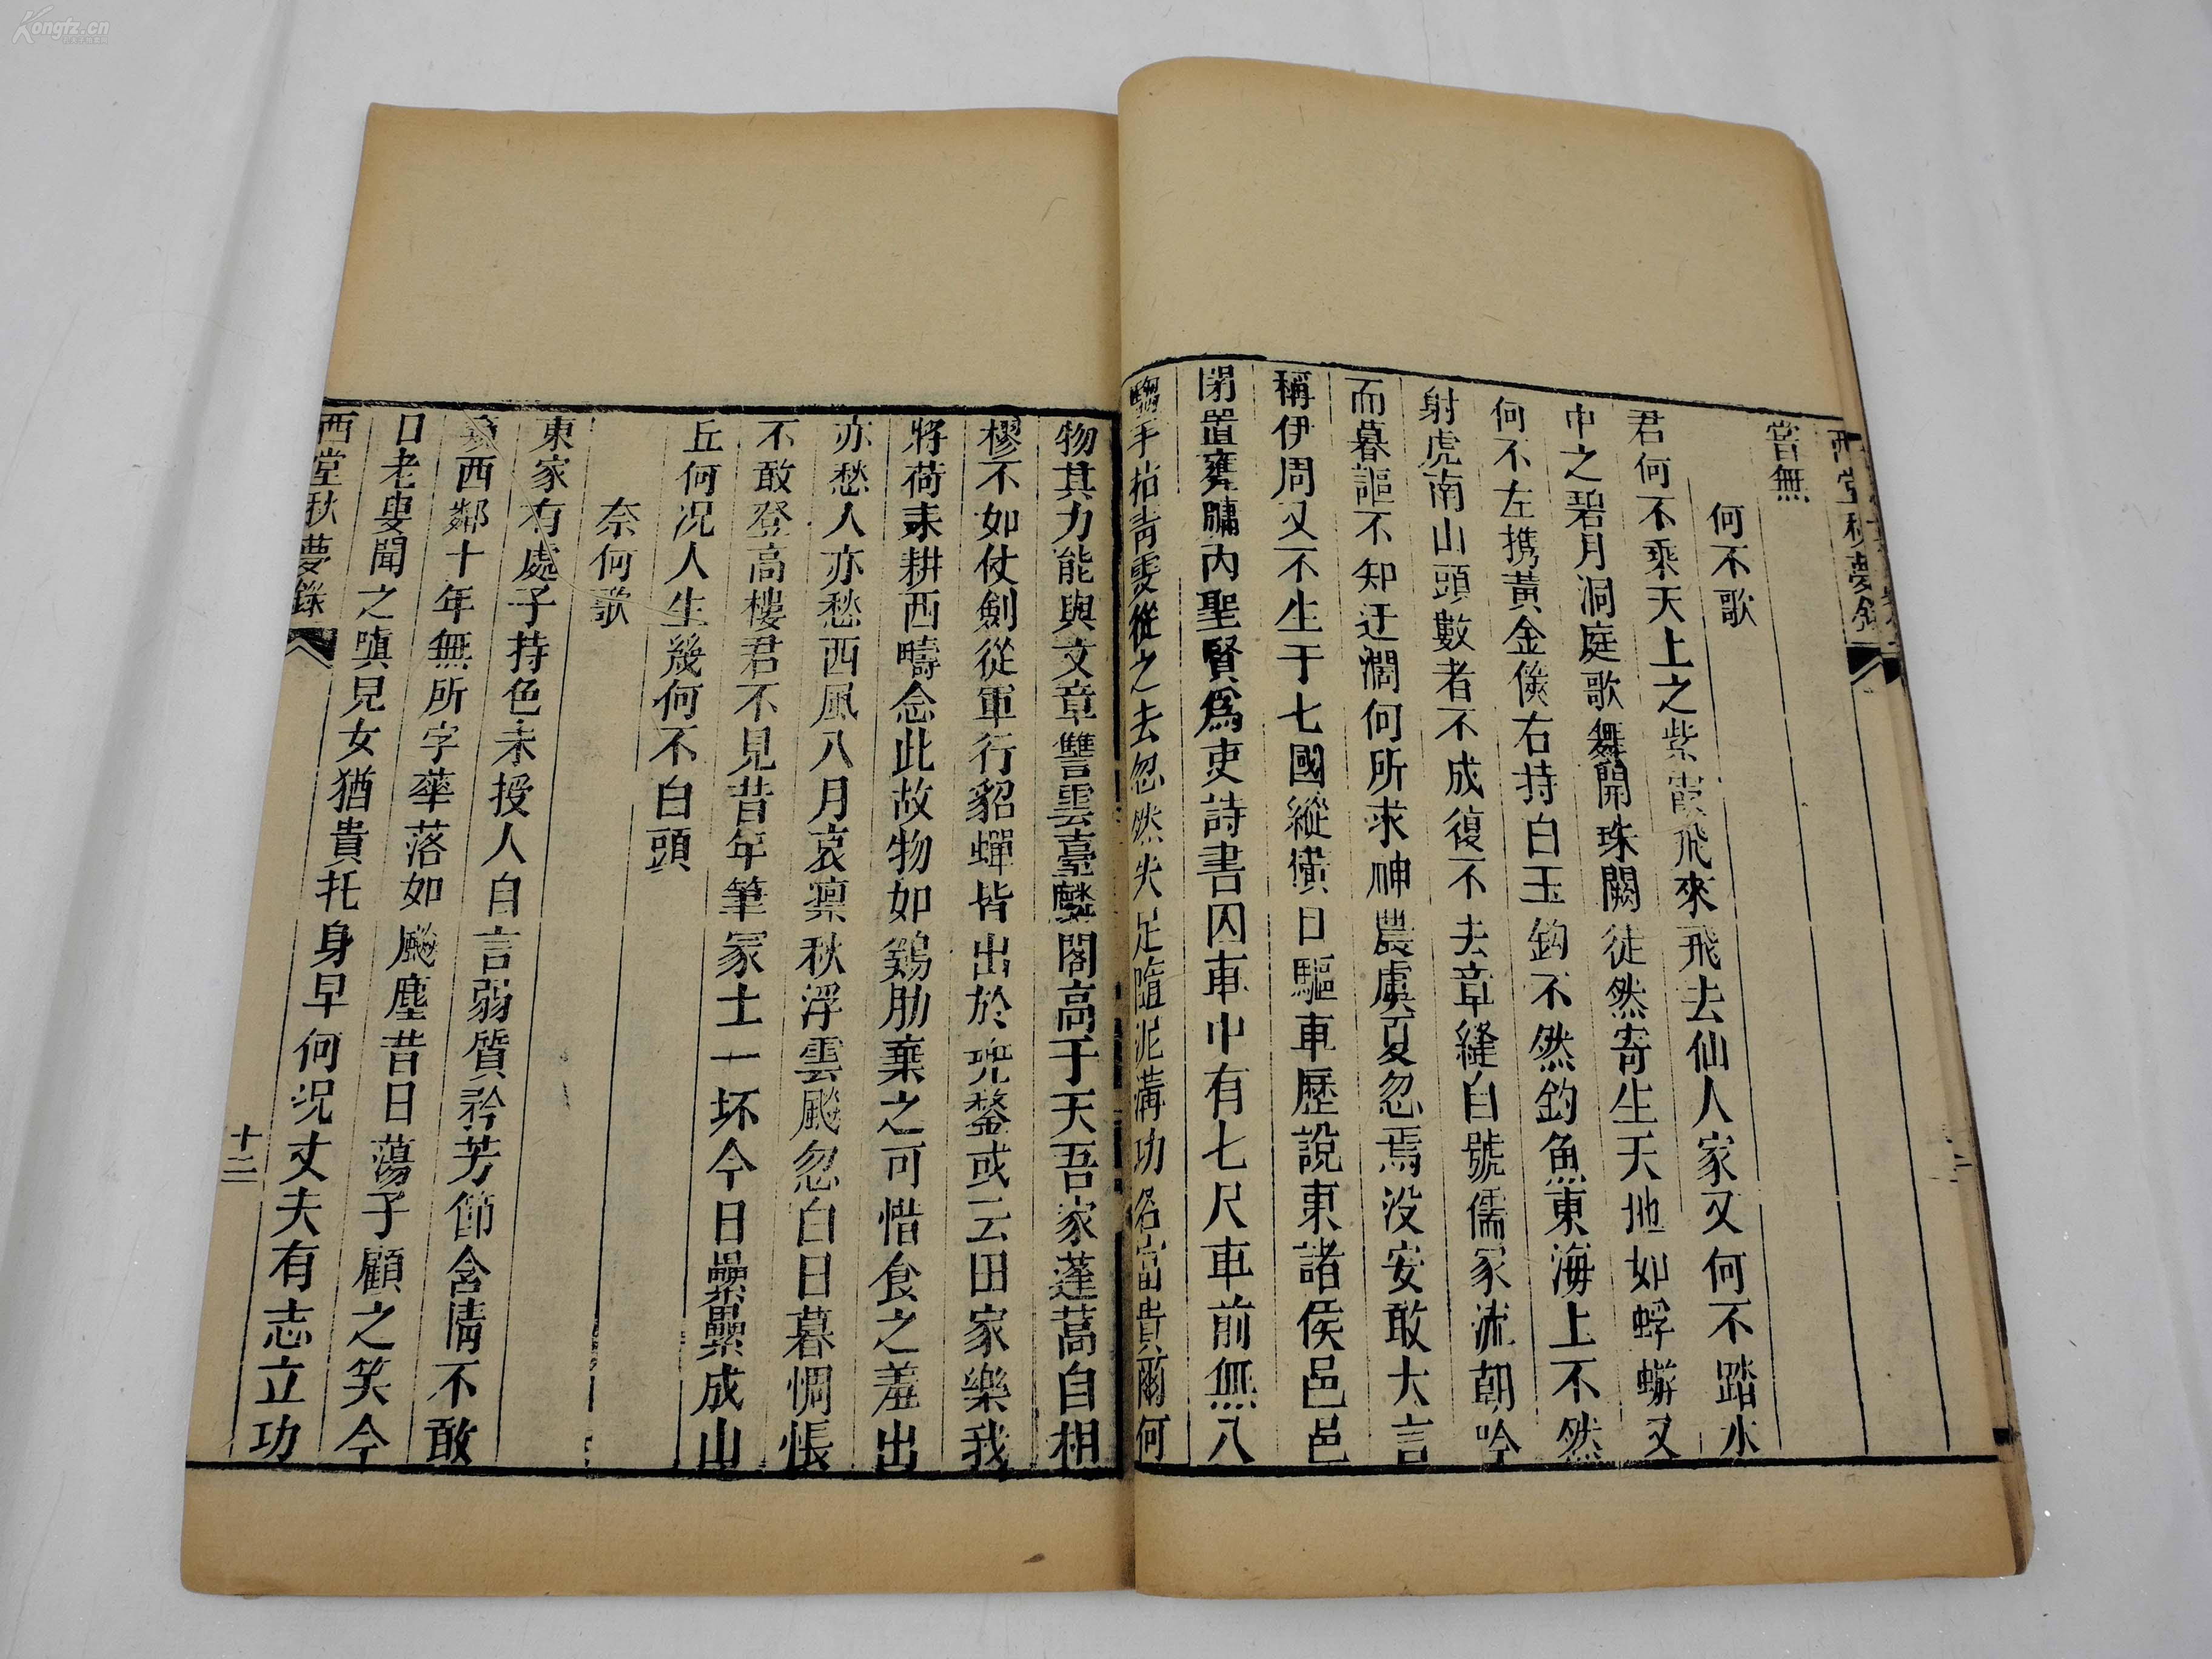 Kongfz.cn
西堂秋夢錄
嘗無
何不歌
君何不乘天上之紫霞飛來飛去仙人家又何不踏水
中之碧月洞庭歌舞開珠闕徒然寄生天地如蜉蝣又
何不左携黃金侯右持白玉鈎不然釣魚東海上不然
射虎南山頭數者不成復不去章縫自號儒家流朝吟
而暮謳不知迂濶何所求神農虞夏忽焉没安敢大言
稱伊周又不生于七國縱橫日驅車歷說東諸侯邑邑
閉置甕牖内聖賢爲吏詩書囚車中有七尺車前無八
騶手招青雲從之去忽然失足墮泥溝功名富貴爾何
物其力能與文章讐雲臺麟閣高于天吾家蓬蒿自相
樛不如仗劍從軍行貂蟬皆出於兜鍪或云田家樂我
將荷耒耕西疇念此故物如鷄肋棄之可惜食之羞出
亦愁人亦愁西風八月哀凛秋浮雲飈忽白日暮惆悵
不敢登高樓君不見昔年筆冢土一坏今日纍纍成山
丘何况人生幾何不白頭
奈何歌
東家有處子持色未授人自言弱質矜芳節含情不敢
窺西鄰十年無所字華落如飈塵昔日蕩子顧之笑今
日老婁聞之嗔兒女猶貴托身早何况丈夫有志立功
西堂秋夢錄
十二